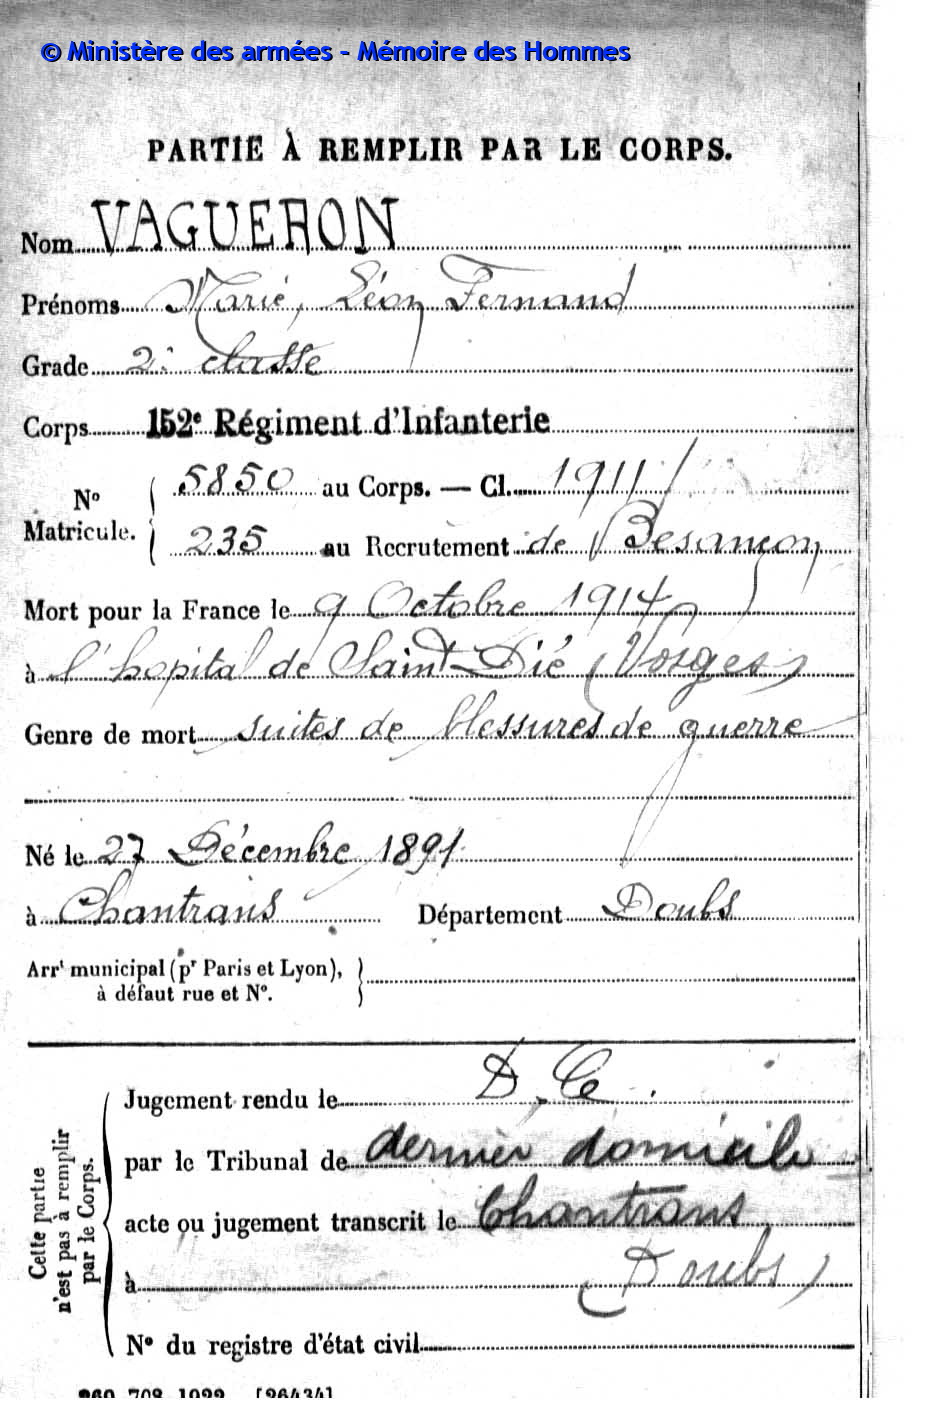 © Ministère des armées - Mémoire des Hommes
PARTIE À REMPLIR PAR LE CORPS.
Nom VAGUERON
Prénoms Marie, Léon Fernand
Grade 2e classe
Corps 152e Régiment d'Infanterie
No Matricule. 5850 au Corps. — Cl. 1911
235 au Recrutement de Besançon
Mort pour la France le 9 Octobre 1914
à l'hopital de Saint-Dié (Vosges)
Genre de mort suites de blessures de guerre
Né le 27 Décembre 1891
à Chantrans Département Doubs
Arrt municipal (pr Paris et Lyon),
à défaut rue et No.
Cette partie
n'est pas à remplir
par le Corps.
Jugement rendu le D. C.
par le Tribunal de dernier domicile
acte ou jugement transcrit le Chantrans
à (Doubs)
No du registre d'état civil
260.708.1922. [26434]